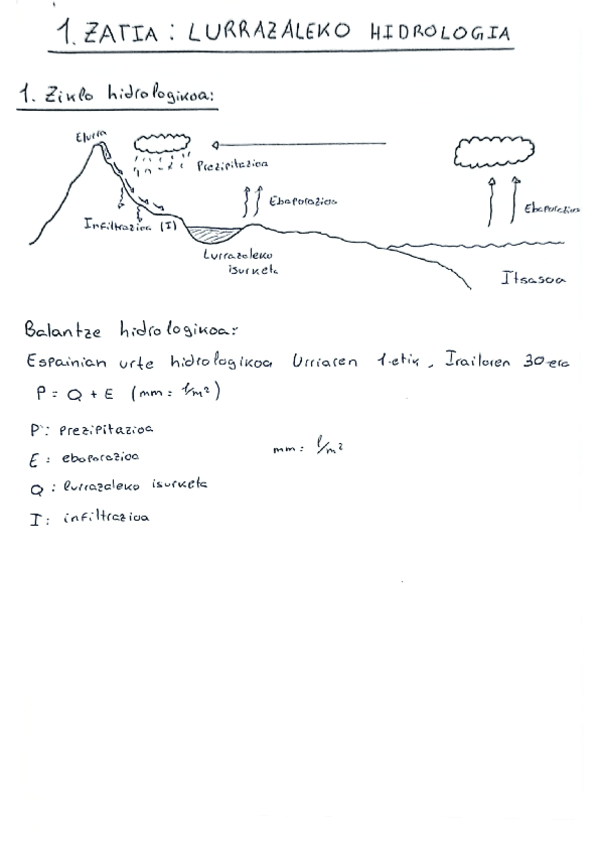 1. ZATIA : LURRAZALEKO HIDROLOGIA
1. Ziklo hidrologikoa:
Elurra
Prezipitazioa
Ebaporazioa
Ebaporazioa
Infiltrazioa (I)
Lurrazaleko
isurketa
Itsasoa
Balantze hidrologikoa:
Espainian urte hidrologikoa Urriaren 1-etik, Irailaren 30-era
P = Q + E (mm = l/m²)
P: Prezipitazioa
mm = l/m²
E : ebaporazioa
Q : lurrazaleko isurketa
I : infiltrazioa